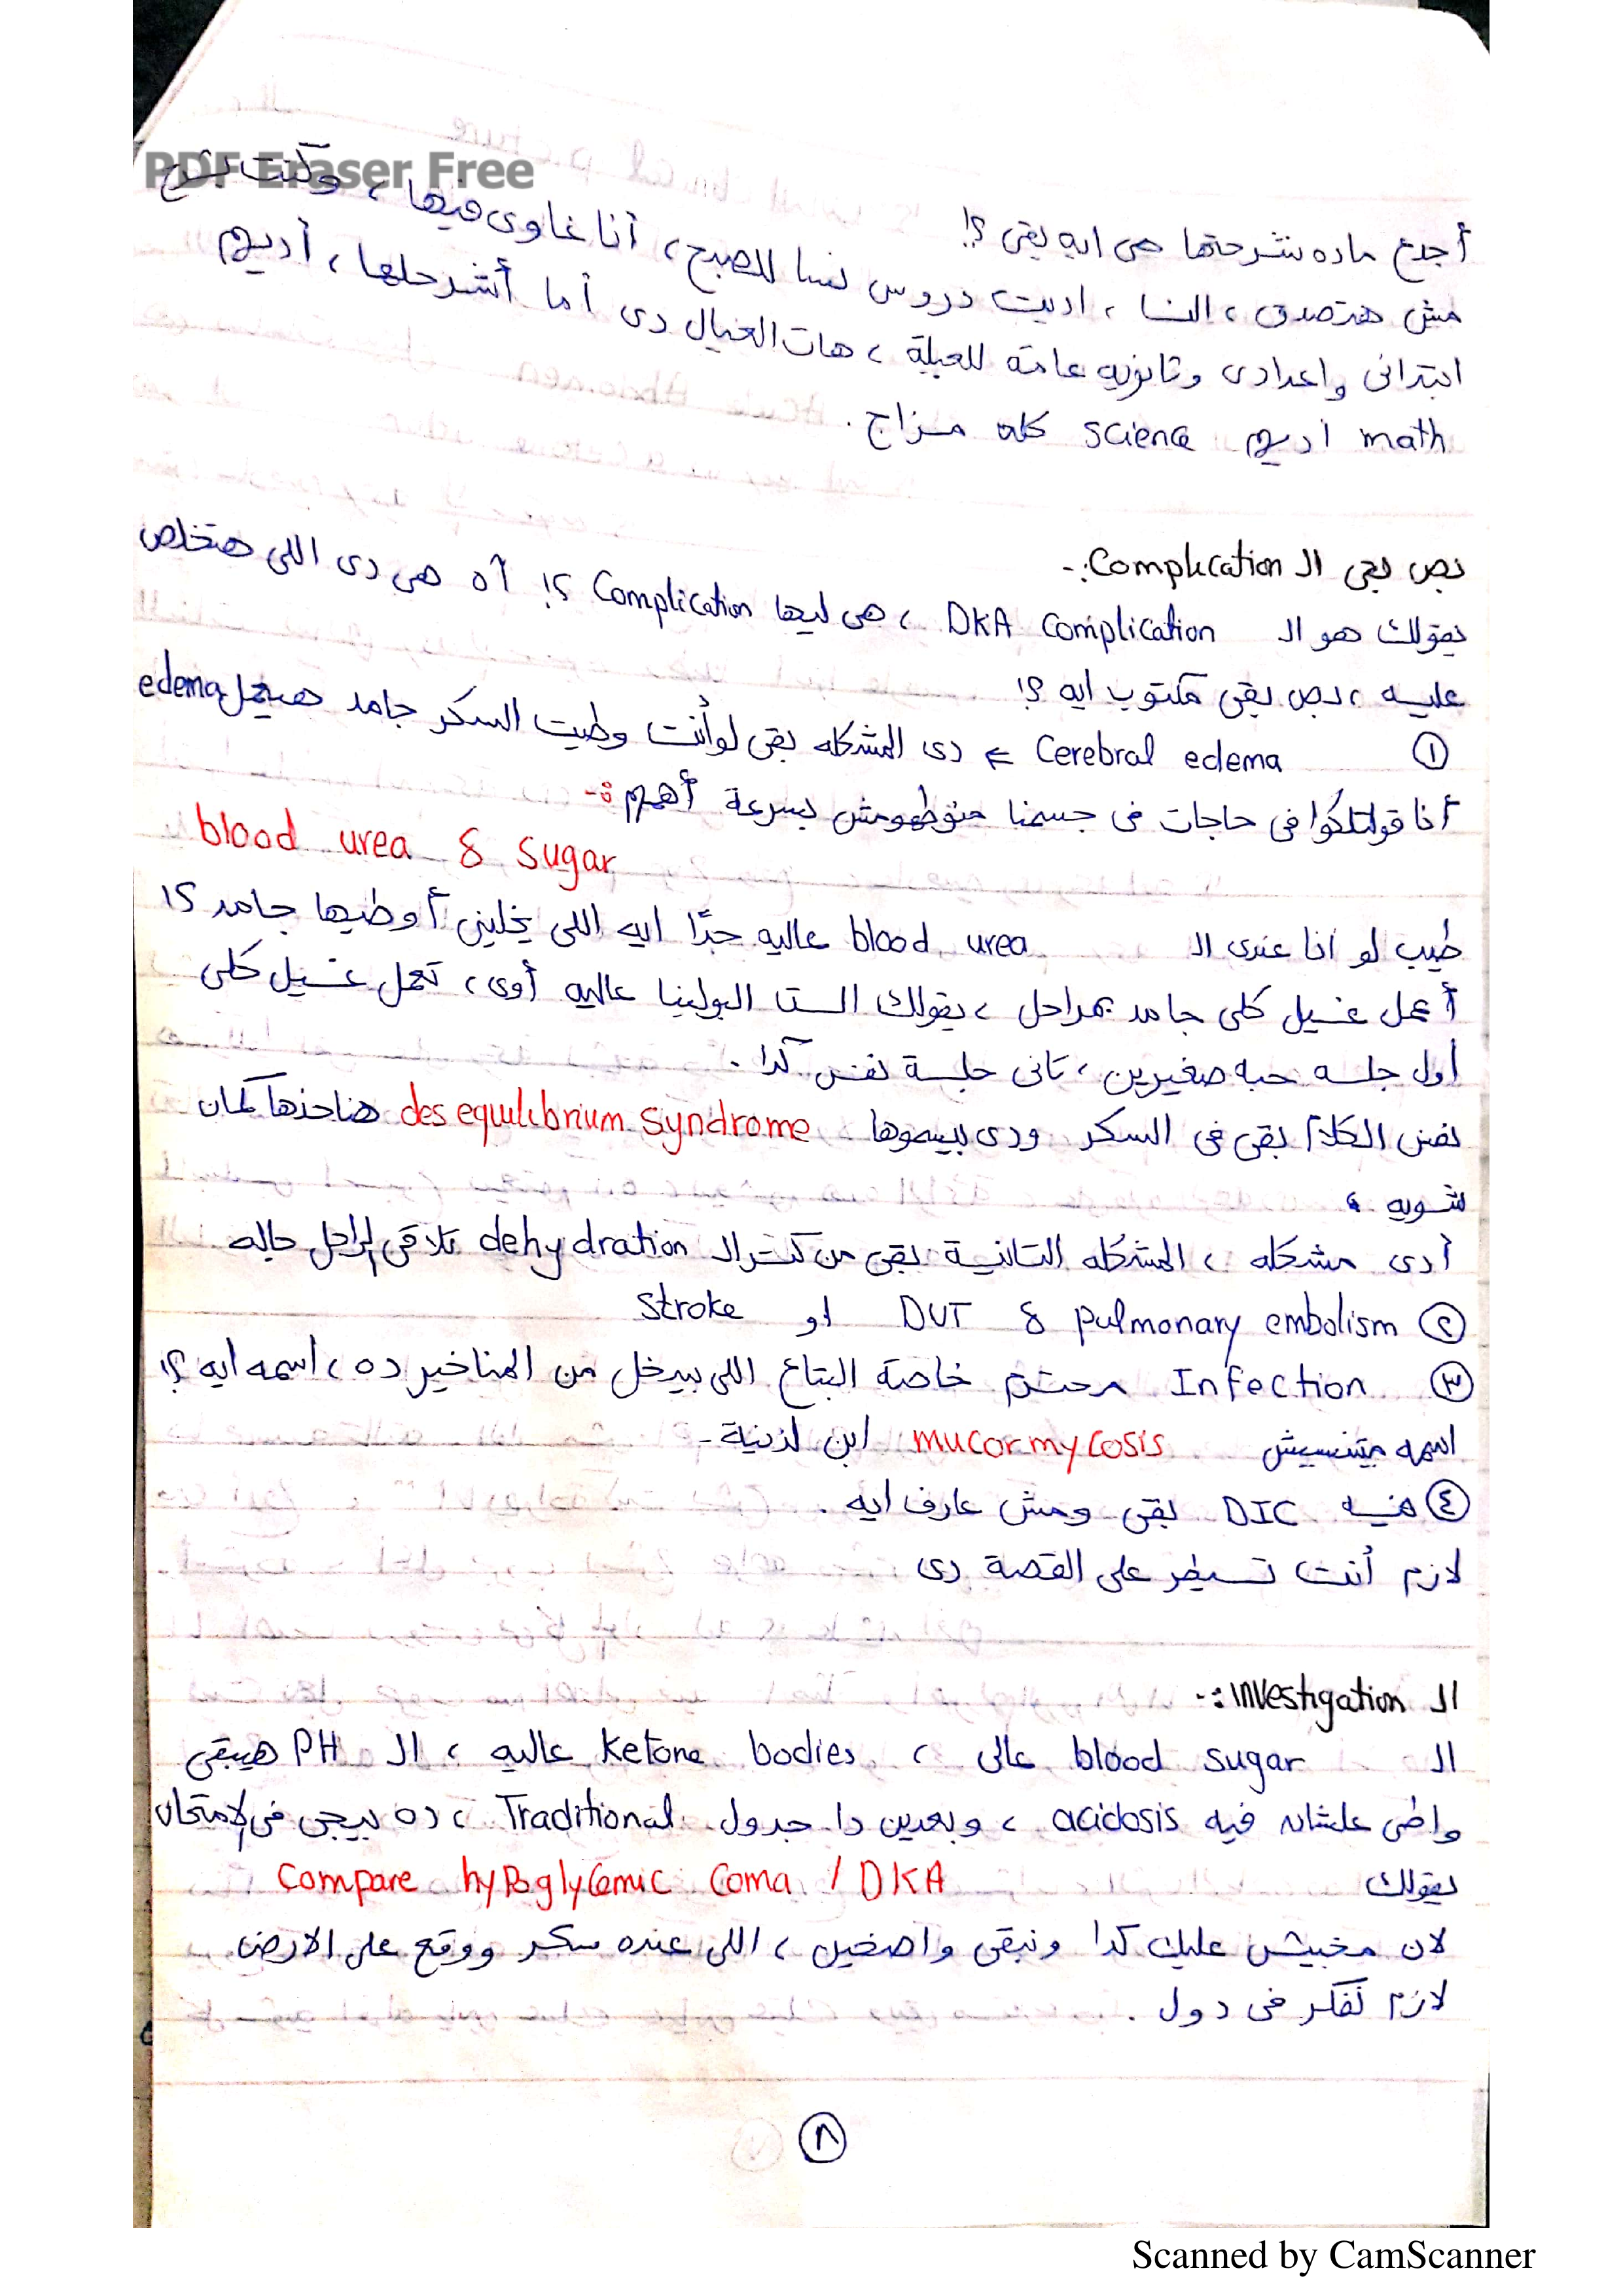 PDF Eraser Free
أجدع ماده شرحتها هى ايه بقى ؟!
مش هتصدق ، النسا ، اديت دروس نسا للصبح ، أنا غاوى فيها ، وكنت بشرح
ابتدائى واعدادى وثانويه عامة للعيلة ، هات العيال دى أما أشرحلها ، أديهم
math أديهم science كله مزاج .
نص بقى الـ Complication :-
يقولك هو الـ DKA Complication ، هى ليها Complication ؟! آه هى دى اللى هتخلص
عليه ، بص بقى مكتوب ايه ؟!
① Cerebral edema ⇐ دى المشكله بقى لو أنت وطيت السكر جامد هيعمل edema
أنا قولتلكوا فى حاجات فى جسمنا منوطهومش بسرعة أهمهم :-
blood urea & sugar
طيب لو انا عندى الـ blood urea عاليه جدًا ايه اللى يخلينى أوطيها جامد ؟!
أعمل غسيل كلى جامد بمراحل ، يقولك الست البولينا عاليه أوى ، تعمل غسيل كلى
أول جلسه حبه صغيرين ، تانى جلسة نفس كدا .
نفس الكلام بقى فى السكر ودى بيسموها desequilibrium syndrome هناخدها كمان
شويه ،
أدى مشكله ، المشكله التانية بقى من كتر الـ dehydration تلاقى الراجل جاله
② DVT & pulmonary embolism او stroke
③ Infection محترم خاصة البتاع اللى بيدخل من المناخير ده ، اسمه ايه ؟!
اسمه ميتنسيش mucormycosis ابن لذينة -
④ فيه DIC بقى ومش عارف ايه .
لازم أنت تسيطر على القصة دى
الـ investigation :-
الـ blood sugar عالى ، ketone bodies عاليه ، الـ PH هيبقى
واطى علشان فيه acidosis ، وبعدين دا جدول Traditional ، ده بييجى فى الامتحان
يقولك Compare hypoglycemic Coma / DKA
لان مخبيش عليك كدا ونبقى واضحين ، اللى عنده سكر ووقع على الارض
لازم نفكر فى دول .
٨
Scanned by CamScanner